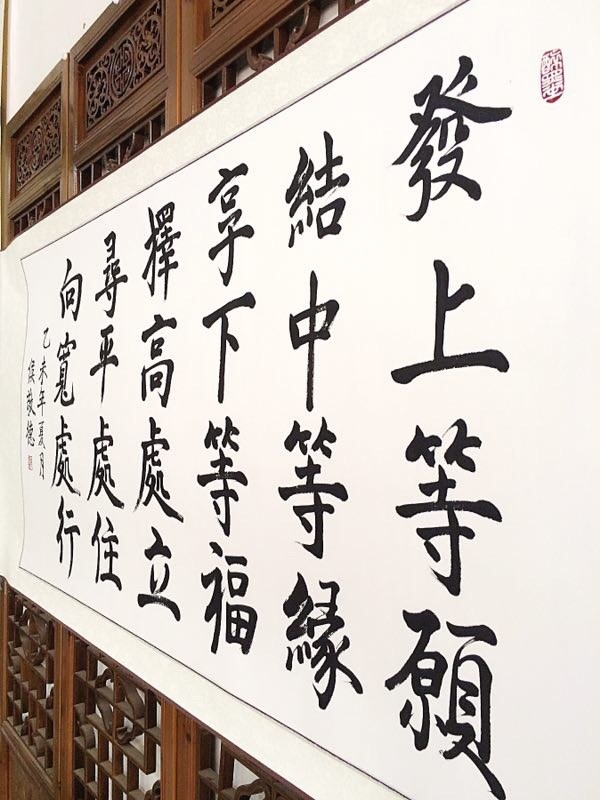 發上等願
結中等緣
享下等福
擇高處立
尋平處住
向寬處行
乙未年夏月
侯敬德